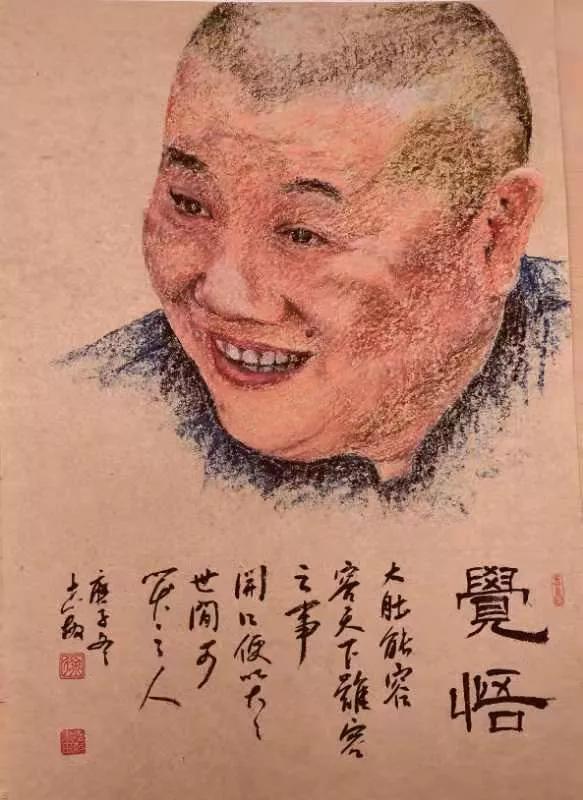 覺悟
大肚能容
容天下難容
之事
開口便笑〻
世間可
笑之人
庚子冬